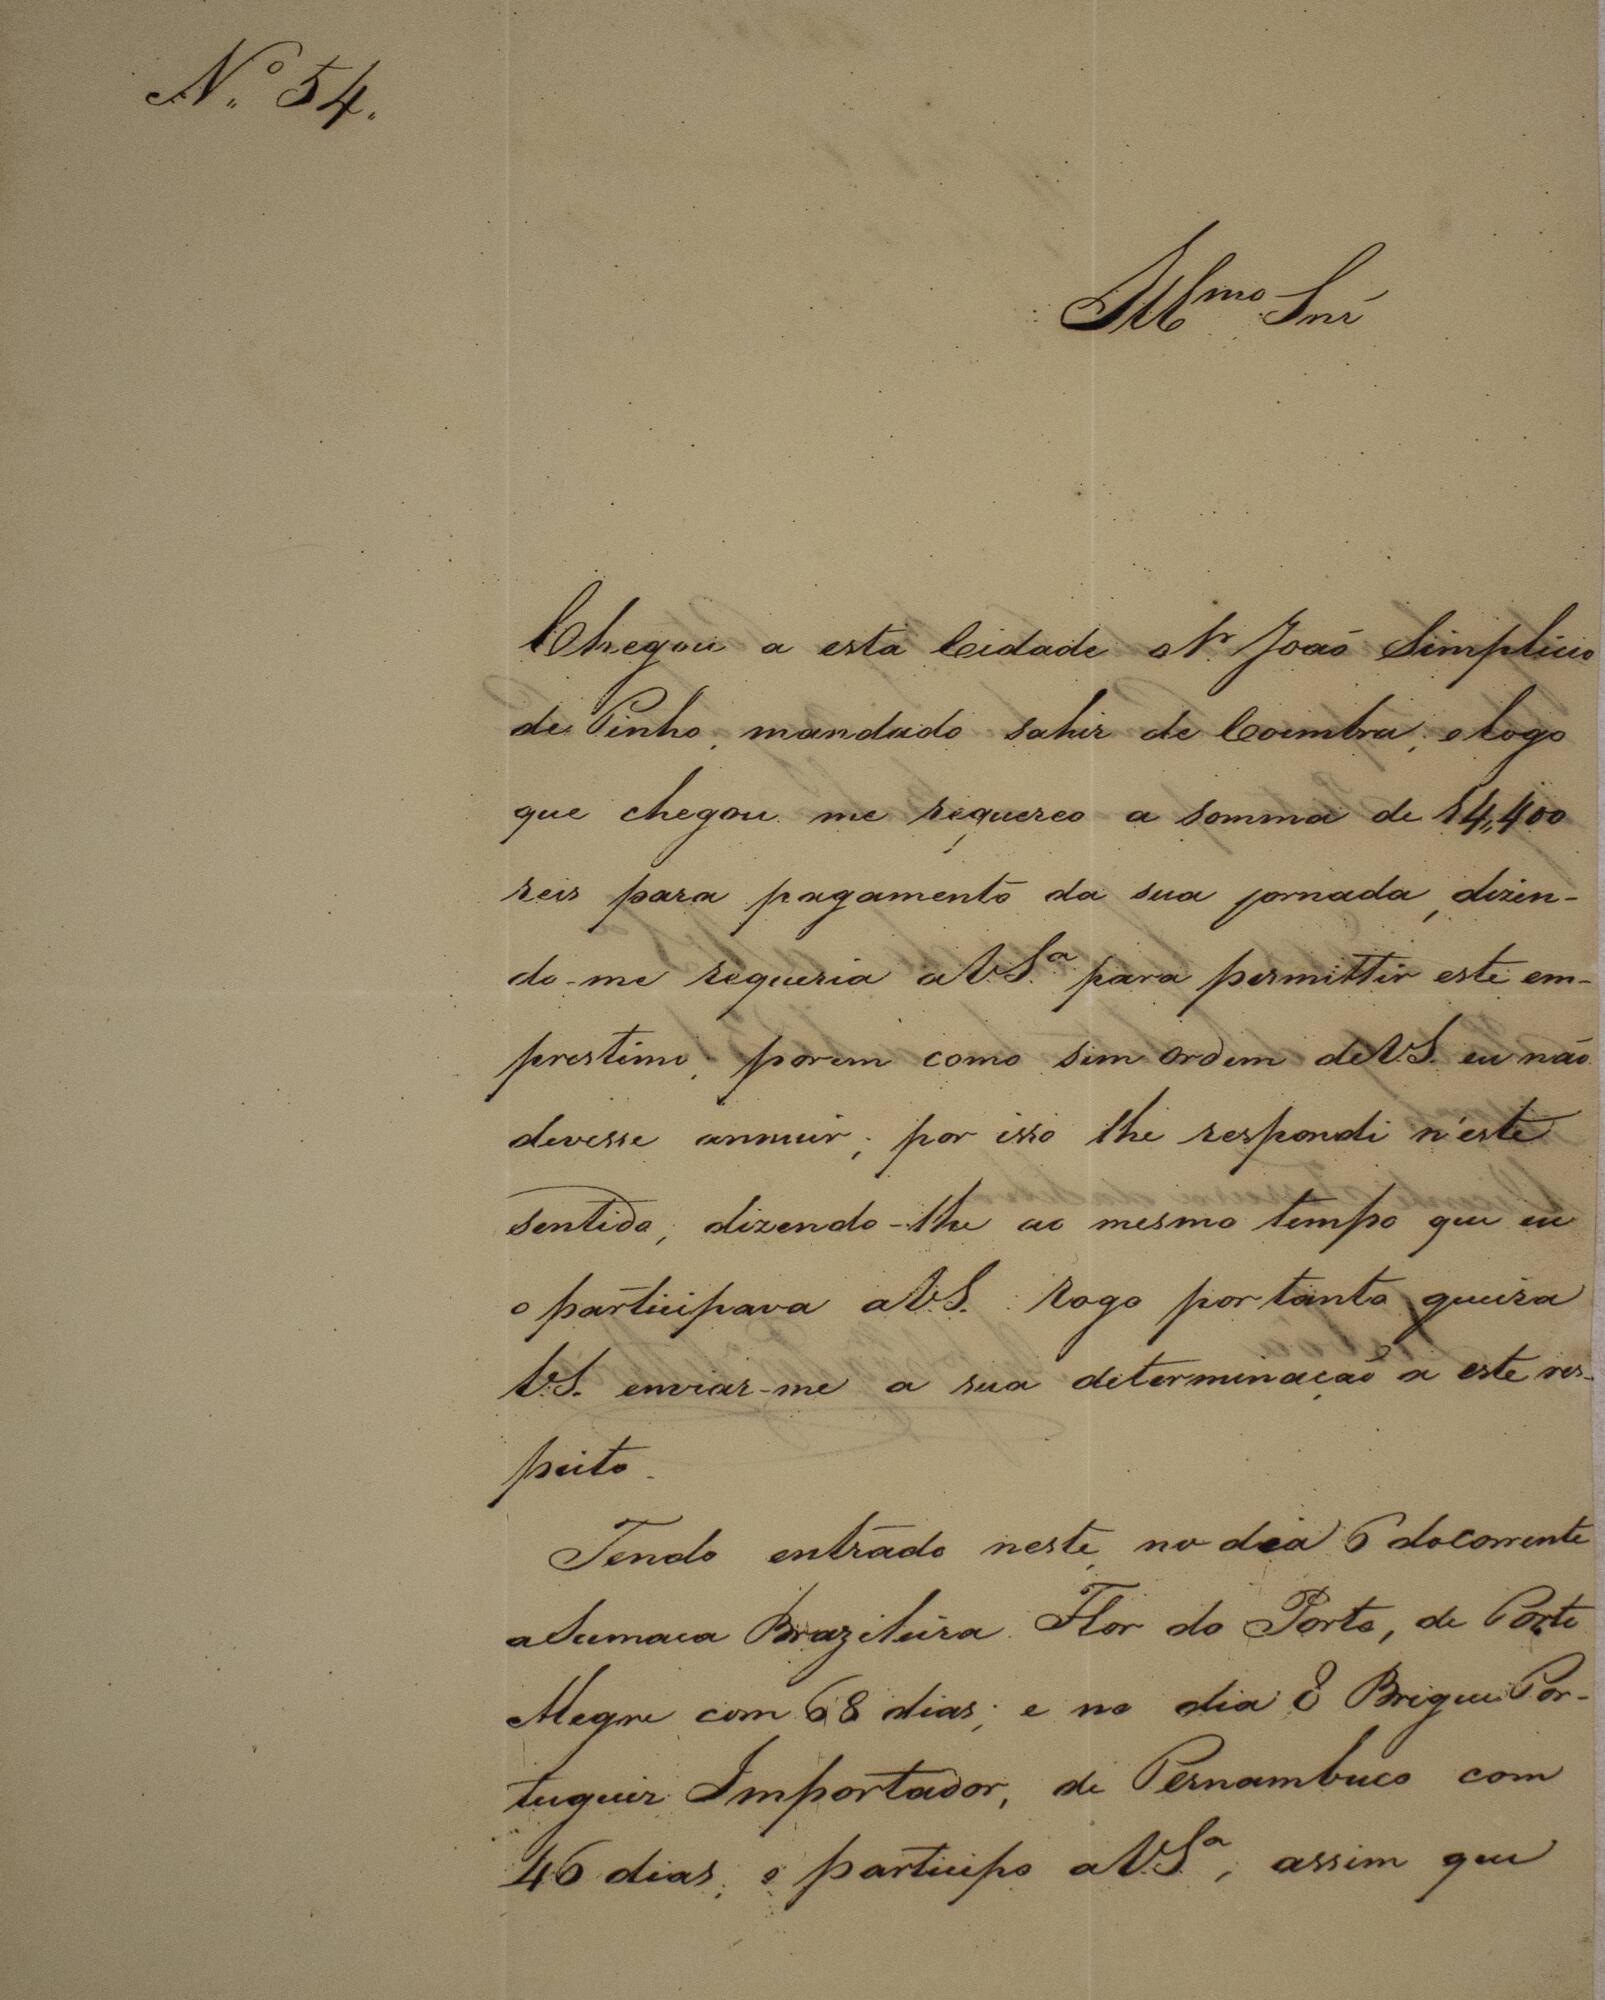 Nº 54.
Illmo Snr
Chegou a esta Cidade o Sr. João Simplicio
de Pinho, mandado sahir de Coimbra, e logo
que chegou me requereo a somma de 14,400
reis para pagamento da sua jornada, dizen-
do-me requeria a V.S.ª para permittir este em-
prestimo; porem como sem ordem de V.S. eu não
devesse annuir, por isso lhe respondi n'este
sentido, dizendo-lhe ao mesmo tempo que eu
o participava a V.S. rogo por tanto queira
V.S. enviar-me a sua determinação a este res-
peito.
Tendo entrado neste, no dia 6 do corrente
a Sumaca Brazileira Flor do Porto, de Porto
Alegre com 68 dias; e no dia 8 Brigue Por-
tuguez Importador, de Pernambuco com
46 dias; o participo a V.S.ª, assim que